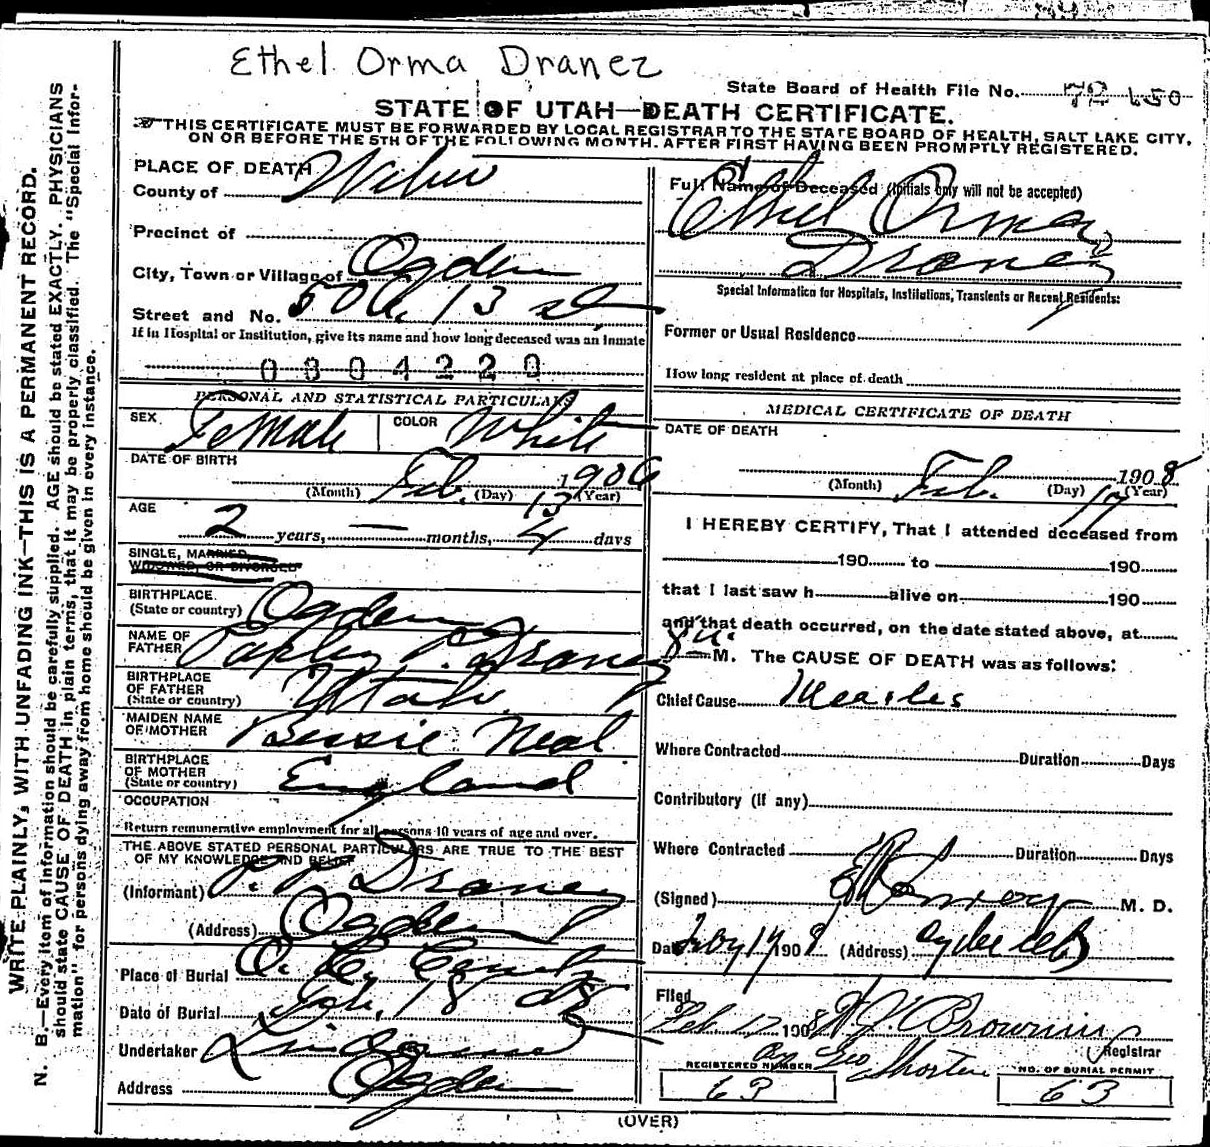 Ethel Orma Draney
State Board of Health File No.
STATE OF UTAH—DEATH CERTIFICATE.
THIS CERTIFICATE MUST BE FORWARDED BY LOCAL REGISTRAR TO THE STATE BOARD OF HEALTH, SALT LAKE CITY,
ON OR BEFORE THE 5TH OF THE FOLLOWING MONTH. AFTER FIRST HAVING BEEN PROMPTLY REGISTERED.
WRITE PLAINLY, WITH UNFADING INK—THIS IS A PERMANENT RECORD.
N. B.—Every item of information should be carefully supplied. AGE should be stated EXACTLY. PHYSICIANS
should state CAUSE OF DEATH in plain terms, that it may be properly classified. The "Special Infor-
mation" for persons dying away from home should be given in every instance.
PLACE OF DEATH
County of Weber
Precinct of
City, Town or Village of Ogden
Street and No. 13 st
If in Hospital or Institution, give its name and how long deceased was an Inmate
0304220
PERSONAL AND STATISTICAL PARTICULARS
SEX Female COLOR White
DATE OF BIRTH
(Month) Feb. (Day) 13 1906 (Year)
AGE
2 years, — months, 4 days
SINGLE, MARRIED,
WIDOWED, OR DIVORCED
BIRTHPLACE
(State or country) Ogden
NAME OF
FATHER P. Draney
BIRTHPLACE
OF FATHER
(State or country) Utah
MAIDEN NAME
OF MOTHER Bessie Neal
BIRTHPLACE
OF MOTHER
(State or country) England
OCCUPATION
Return remunerative employment for all persons 10 years of age and over.
THE ABOVE STATED PERSONAL PARTICULARS ARE TRUE TO THE BEST
OF MY KNOWLEDGE AND BELIEF
(Informant) P. P. Draney
(Address) Ogden
Place of Burial O. C.
Date of Burial Feb. 18 08
Undertaker
Address Ogden
Full Name of Deceased (Initials only will not be accepted)
Ethel Orma
Draney
Special Information for Hospitals, Institutions, Transients or Recent Residents:
Former or Usual Residence
How long resident at place of death
MEDICAL CERTIFICATE OF DEATH
DATE OF DEATH
(Month) Feb. (Day) 17 1908 (Year)
I HEREBY CERTIFY, That I attended deceased from
190 to 190
that I last saw h alive on 190
and that death occurred, on the date stated above, at
8 M. The CAUSE OF DEATH was as follows:
Chief Cause Measles
Where Contracted Duration Days
Contributory (If any)
Where Contracted Duration Days
(Signed) M. D.
Date 17 1908 (Address)
Filed
Feb. 17 1908 Browning
Registrar
By Geo Shorten
REGISTERED NUMBER
63
NO. OF BURIAL PERMIT
63
(OVER)